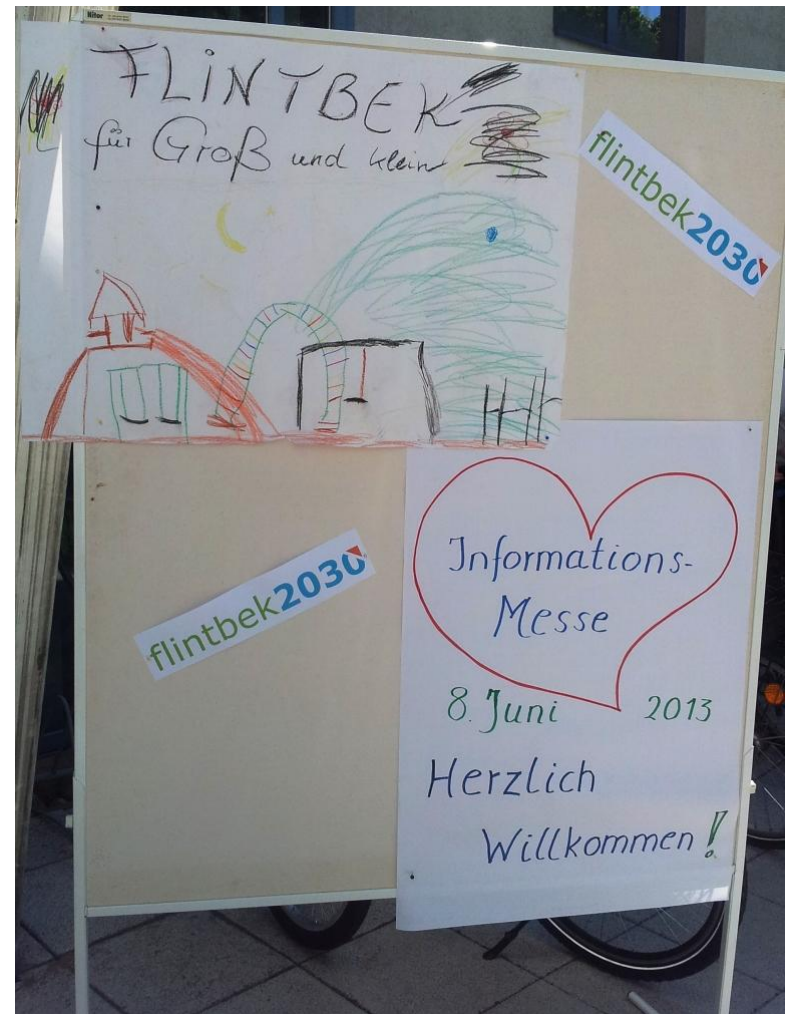 FLINTBEK
für Groß und klein
flintbek2030
flintbek2030
Informations-
Messe
8. Juni 2013
Herzlich
Willkommen!